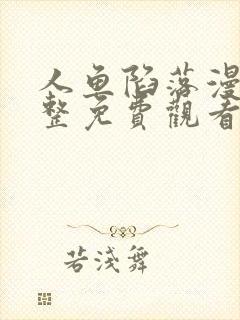 人魚陷落漫
整免費觀看
若淺舞